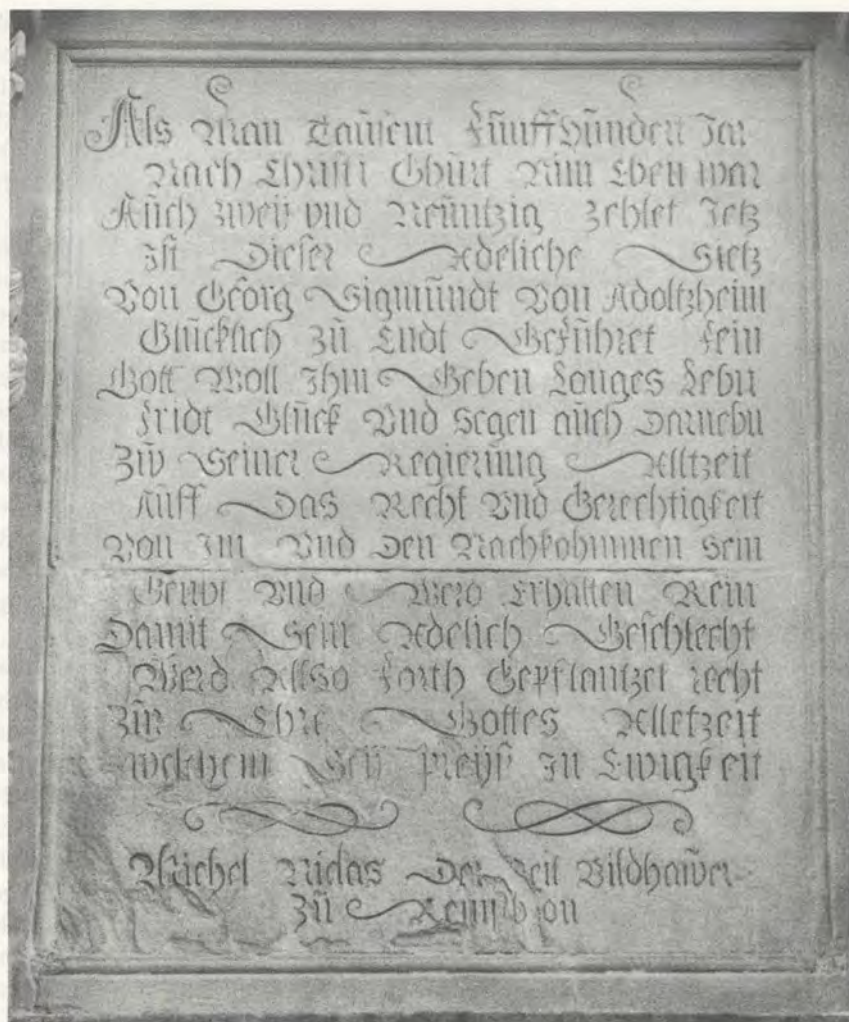 Als Man Taüsent Fünffhündert Jar
Nach Christi Gbürt Nim Eben war
Aüch zweÿ vnd Neüntzig Zehlet Jetz
Ist Dieser Adeliche Sietz
Von Georg Sigmündt Von Adoltzheim
Glücklich Zü Endt Geführet fein
Gott Woll Ihm Geben Langes Lebn
Fridt Glück Vnd Segen aüch Darnebn
Zü Seiner Regierüng Alltzeit
Aüff Das Recht Vnd Gerechtigkeit
Von Im Vnd Den Nachkohmmen Sein
Geübt Vnd Werd Erhalten Rein
Damit Sein Adelich Geschlecht
Werd Allso Forth Gepflantzet recht
Zür Ehre Gottes Alletzeit
Welchem Seÿ Preÿß In Ewigkeit
Michel Niclas Der Zeit Bildhaŵer
Zü